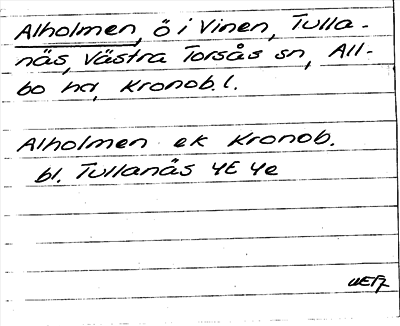 Alholmen, ö i Vinen, Tulla-
näs, Västra Torsås sn, All-
bo hd, Kronob. l.
Alholmen ek Kronob.
bl. Tullanäs 4E 4e